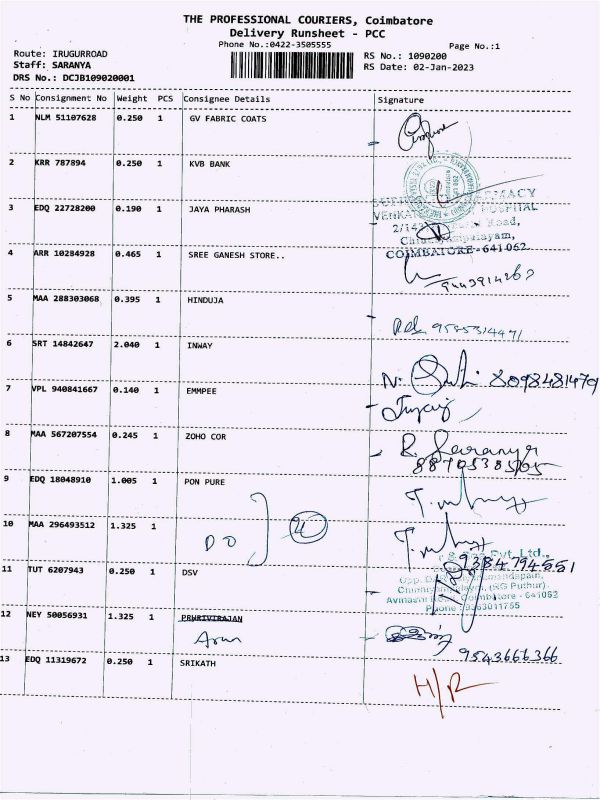 THE PROFESSIONAL COURIERS, Coimbatore
Delivery Runsheet - PCC
Phone No.:0422-3505555
Page No.:1
Route: IRUGURROAD
RS No.: 1090200
Staff: SARANYA
RS Date: 02-Jan-2023
DRS No.: DCJB109020001
S No Consignment No Weight PCS Consignee Details Signature
1 NLM 51107628 0.250 1 GV FABRIC COATS
2 KRR 787894 0.250 1 KVB BANK
3 EDQ 22728200 0.190 1 JAYA PHARASH
HOSPITAL
Road,
4 ARR 10284928 0.465 1 SREE GANESH STORE..
COIMBATORE - 641 062.
5 MAA 288303068 0.395 1 HINDUJA
9585314471
6 SRT 14842647 2.040 1 INWAY
8098481479
7 VPL 940841667 0.140 1 EMMPEE
8 MAA 567207554 0.245 1 ZOHO COR
R. Saranya
9 EDQ 18048910 1.005 1 PON PURE
10 MAA 296493512 1.325 1
DO
Pvt. Ltd.,
9384794551
11 TUT 6207943 0.250 1 DSV
Coimbatore - 641062
12 NEY 50056931 1.325 1 PRHRIVIRAJAN
Arun
9543666366
13 EDQ 11319672 0.250 1 SRIKATH
H/R